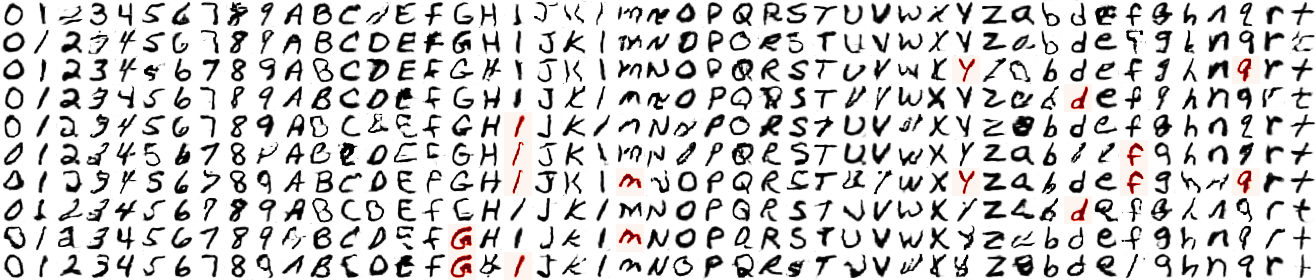 0 1 2 3 4 5 6 7 8 9 A B C E f G H I J K l m N O P Q R S T U V W X Y Z a b d e f g h n q r t
0 1 2 3 4 5 6 7 8 9 A B C D E F G H I J K l m N O P Q R S T U V W X Y Z a b d e f g h n q r t
0 1 2 3 4 5 6 7 8 9 A B C D E F G H I J K l m N O P Q R S T U V W X Y Z a b d e f g h n q r t
0 1 2 3 4 5 6 7 8 9 A B C D E f G H I J K l m N O P Q R S T U V W X Y Z a b d e f g h n q r t
0 1 2 3 4 5 6 7 8 9 A B C E f G H I J K l m N O P Q R S T U V W X Y Z a b d e f g h n q r t
0 1 2 3 4 5 6 7 8 A B C D E F G H I J K l m N O P Q R S T U V W X Y Z a b f g h n q r t
0 1 2 3 4 5 6 7 8 9 A B C D E F G H I J K l m N O P Q R S T U V W X Y Z a b d e f g h n q r t
0 1 2 3 4 5 6 7 8 9 A B C D E f G H I J K l m N O P Q R S T U V W X Y Z a b d e f g h n q r t
0 1 2 3 4 5 6 7 8 9 A B C D E f G H I J K l m N O P Q R S T U V W X Y Z a b d e f g h n q r t
0 1 2 3 4 5 6 7 8 9 A B C D E f G H I J K l m N O P Q R S T U V W X Y Z a b d e f g h n q r t